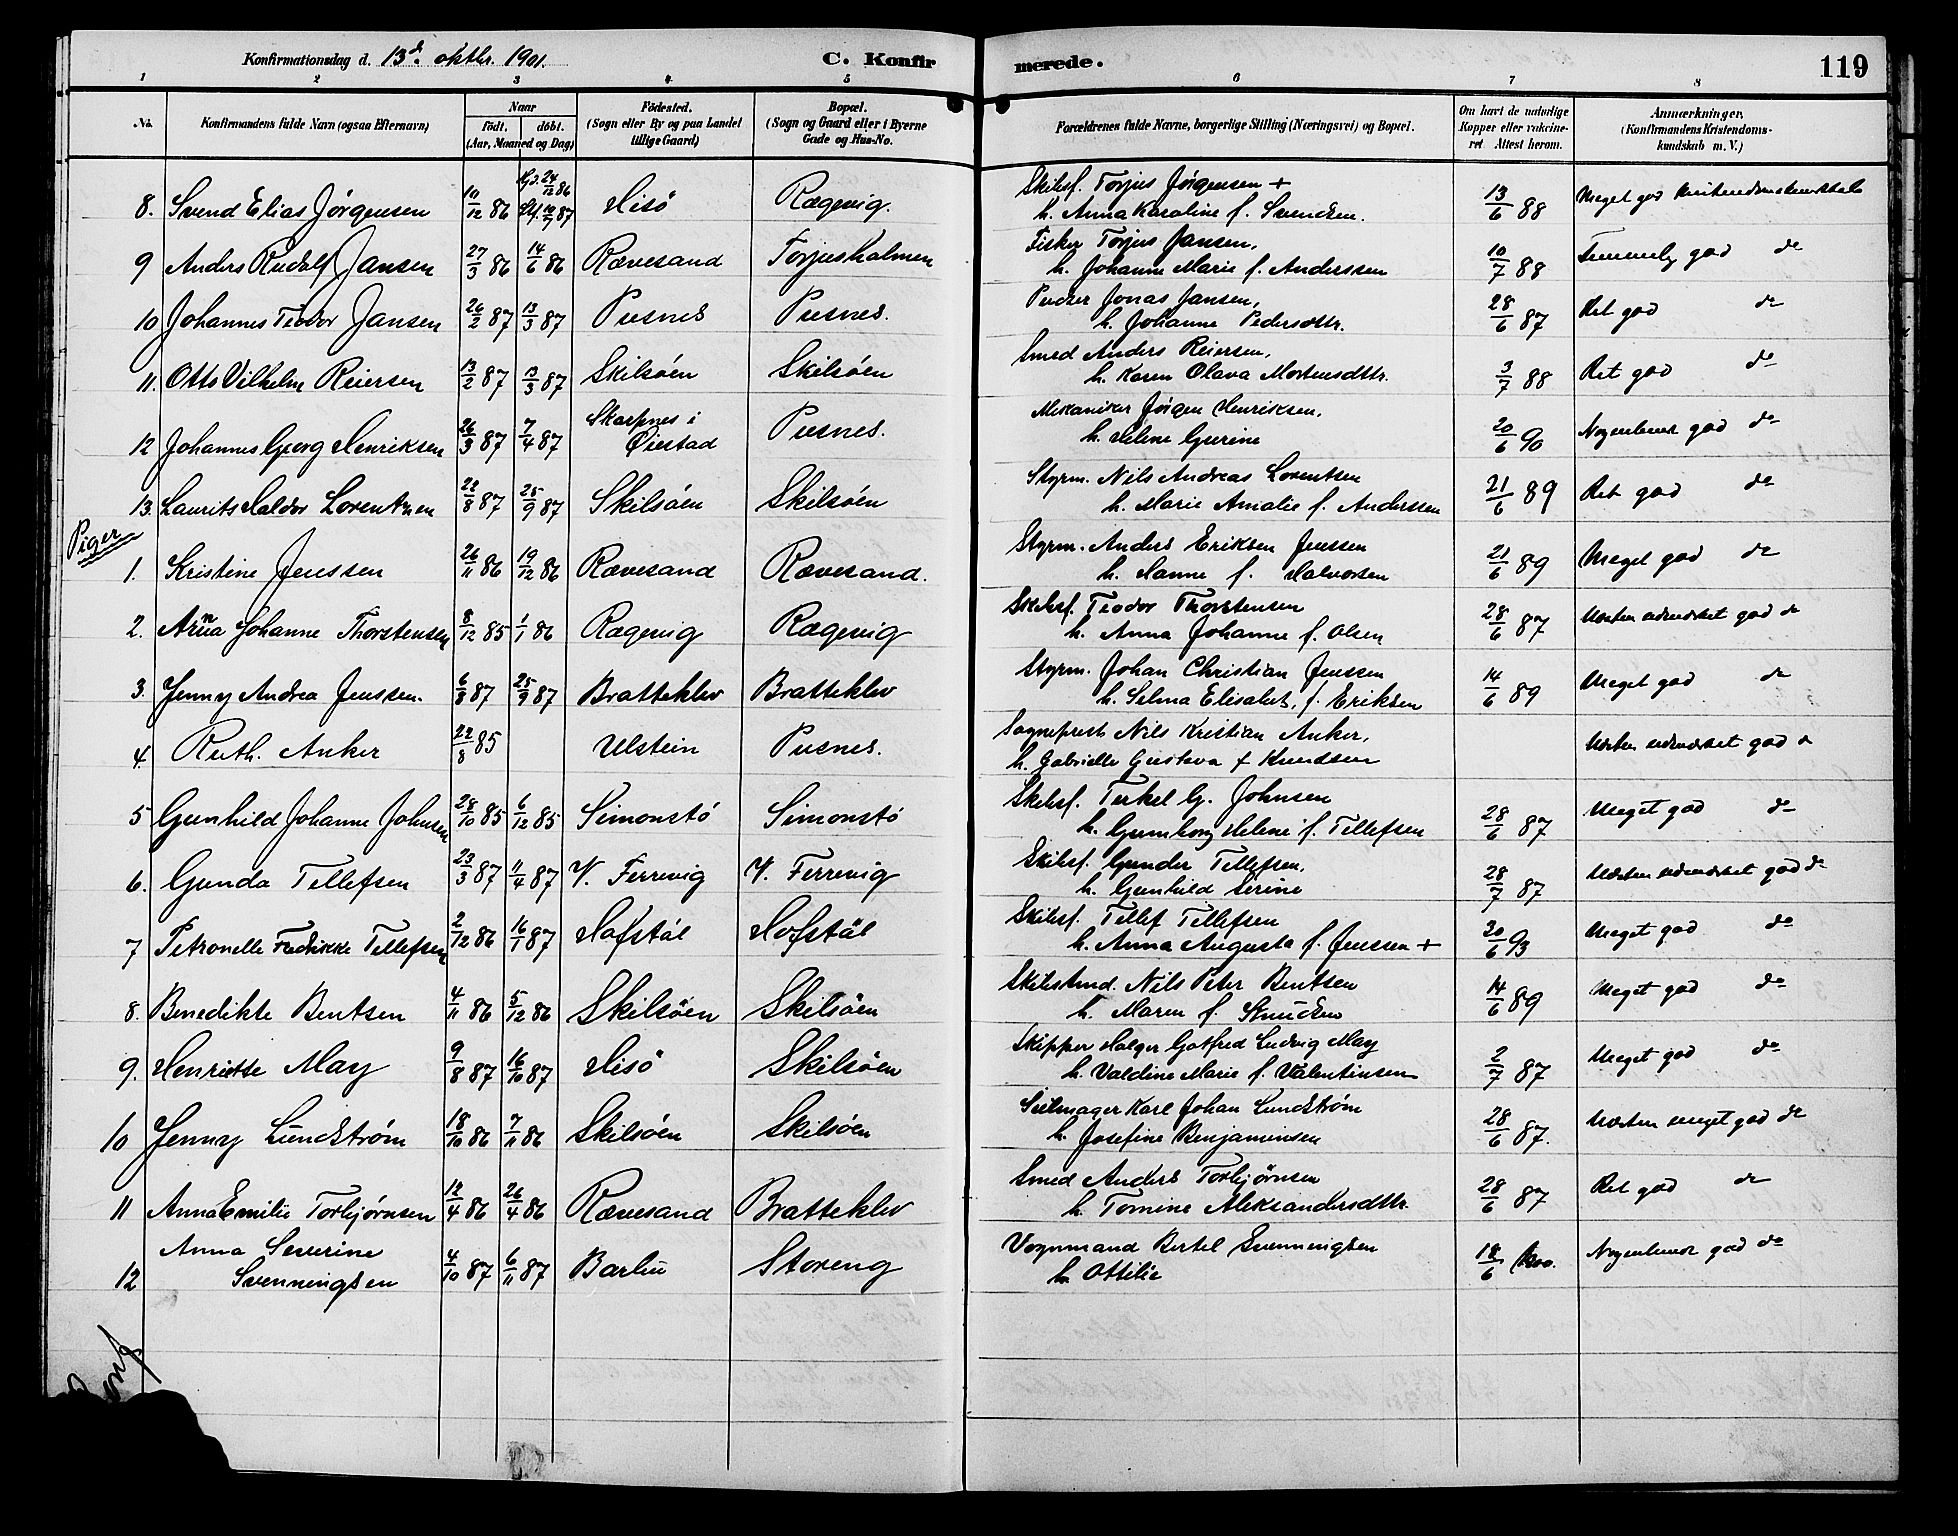 Konfirmationsdag d. 13de oktbr. 1901.
C. Konfirmerede.
119
1 2 3 4 5 6 7 8
No.
Konfirmandens fulde Navn (ogsaa Efternavn)
Naar
Født. døbt.
(Aar, Maaned og Dag)
Fødested.
(Sogn eller By og paa Landet
tillige Gaard)
Bopæl.
(Sogn og Gaard eller i Byerne
Gade og Hus-No.
Forældrenes fulde Navne, borgerlige Stilling (Næringsvei) og Bopæl.
Om havt de naturlige
Kopper eller vakcine-
ret. Attest herom.
Anmærkninger.
(Konfirmandens Kristendoms-
kundskab m. V.)
8. Svend Elias Jørgensen 10/12 86 Hjd. 24/12 86 Hisö Rægevig. Skibsf. Torjus Jørgensen + 13/6 88 Meget god Kristendomskundskab
h. Anna Karoline f. Svendsen.
9 Anders Rudolf Jansen 27/3 86 14/6 86 Rævesand Torjusholmen Fisker Torjus Jansen, 10/7 88 Temmelig god do
h. Johanne Marie f. Anderssen
10 Johannes Teodor Jansen 26/2 87 13/3 87 Pusnes Pusnes. Pudser Jonas Jansen, 28/6 87 Ret god do
h. Johanne Pedersdttr.
11. Otto Vilhelm Reiersen 13/2 87 13/3 87 Skilsöen Skilsöen Smed Anders Reiersen, 3/7 88 Ret god do
h. Karen Olava Mortensdttr.
12 Johannes Georg Henriksen 26/3 87 7/4 87 Skarpnes i Øiestad Pusnes. Mekaniker Jørgen Henriksen. 20/6 90 Nogenlunde god do
h. Helene Gurine
13. Laurits Haldor Lorentzen 22/8 87 25/9 87 Skilsöen Skilsöen Styrm. Nils Andreas Lorentsen 21/6 89 Ret god do
h. Marie Amalie f. Anderssen
Piger
1. Kristine Jenssen 26/11 86 19/12 86 Rævesand Rævesand. Styrm. Anders Eriksen Jenssen 21/6 89 Meget god do
h. Hanne f. Halvorsen
2. Anna Johanne Thorstensen 8/12 85 1/1 86 Rægevig Rægevig Skibsf. Teodor Thorstensen 28/6 87 Næsten udmerket god do
h. Anna Johanne f. Olsen
3. Jenny Andrea Jenssen. 6/8 87 25/9 87 Bratteklev Bratteklev Styrm. Johan Christian Jenssen 14/6 89 Meget god do
h. Selma Elisabet, f. Eriksen
4. Ruth. Anker 22/8 85 Ulstein Pusnes. Sogneprest Nils Kristian Anker, Næsten udmerket god do
h. Gabrielle Gustava f Knudsen
5 Gunhild Johanne Johnsen 28/10 85 6/12 85 Simonstö Simonstö Skibsf. Terkel G. Johnsen 28/6 87 Meget god do
h. Gunborg Helene f. Tellefsen
6. Gunda Tellefsen 23/3 87 11/4 87 V. Ferrevig V. Ferrevig Skibsf. Gunder Tellefsen, 28/7 87 Næsten udmerket god do
h. Gunhild Serine
7 Petronelle Fredrikke Tellefsen 2/12 86 16/1 87 Hofstöl Hofstöl Skibsf. Tellef Tellefsen 20/6 93 Meget god do
h. Anna Augusta f. Jenssen +
8. Benedikte Bentsen 4/11 86 5/12 86 Skilsöen Skilsöen Skibstmd. Nils Peter Bentsen 14/6 89 Meget god do
h. Maren f. Knudsen
9. Henriette May 9/8 87 16/10 87 Hisö Skilsöen Skipper Holger Gotfred Ludvig May 2/7 87 Meget god do
h. Valdine Marie f. Valentinsen
10 Jenny Lundstrøm 18/10 86 7/11 86 Skilsöen Skilsöen Seilmager Karl Johan Lundstrøm 28/6 87. Næsten meget god do
h. Josefine Benjaminsen
11 Anna Emilie Torbjørnsen 12/4 86 26/4 86 Rævesand Bratteklev Smed Anders Torbjørnsen 28/6 87 Ret god do
h. Tomine Aleksandersdttr.
12 Anna Severine Svenningsen 4/10 87 6/11 87 Barbu Storeng Vognmand Bertel Svenningsen 18/6 Nogenlunde god do
h. Ottilie